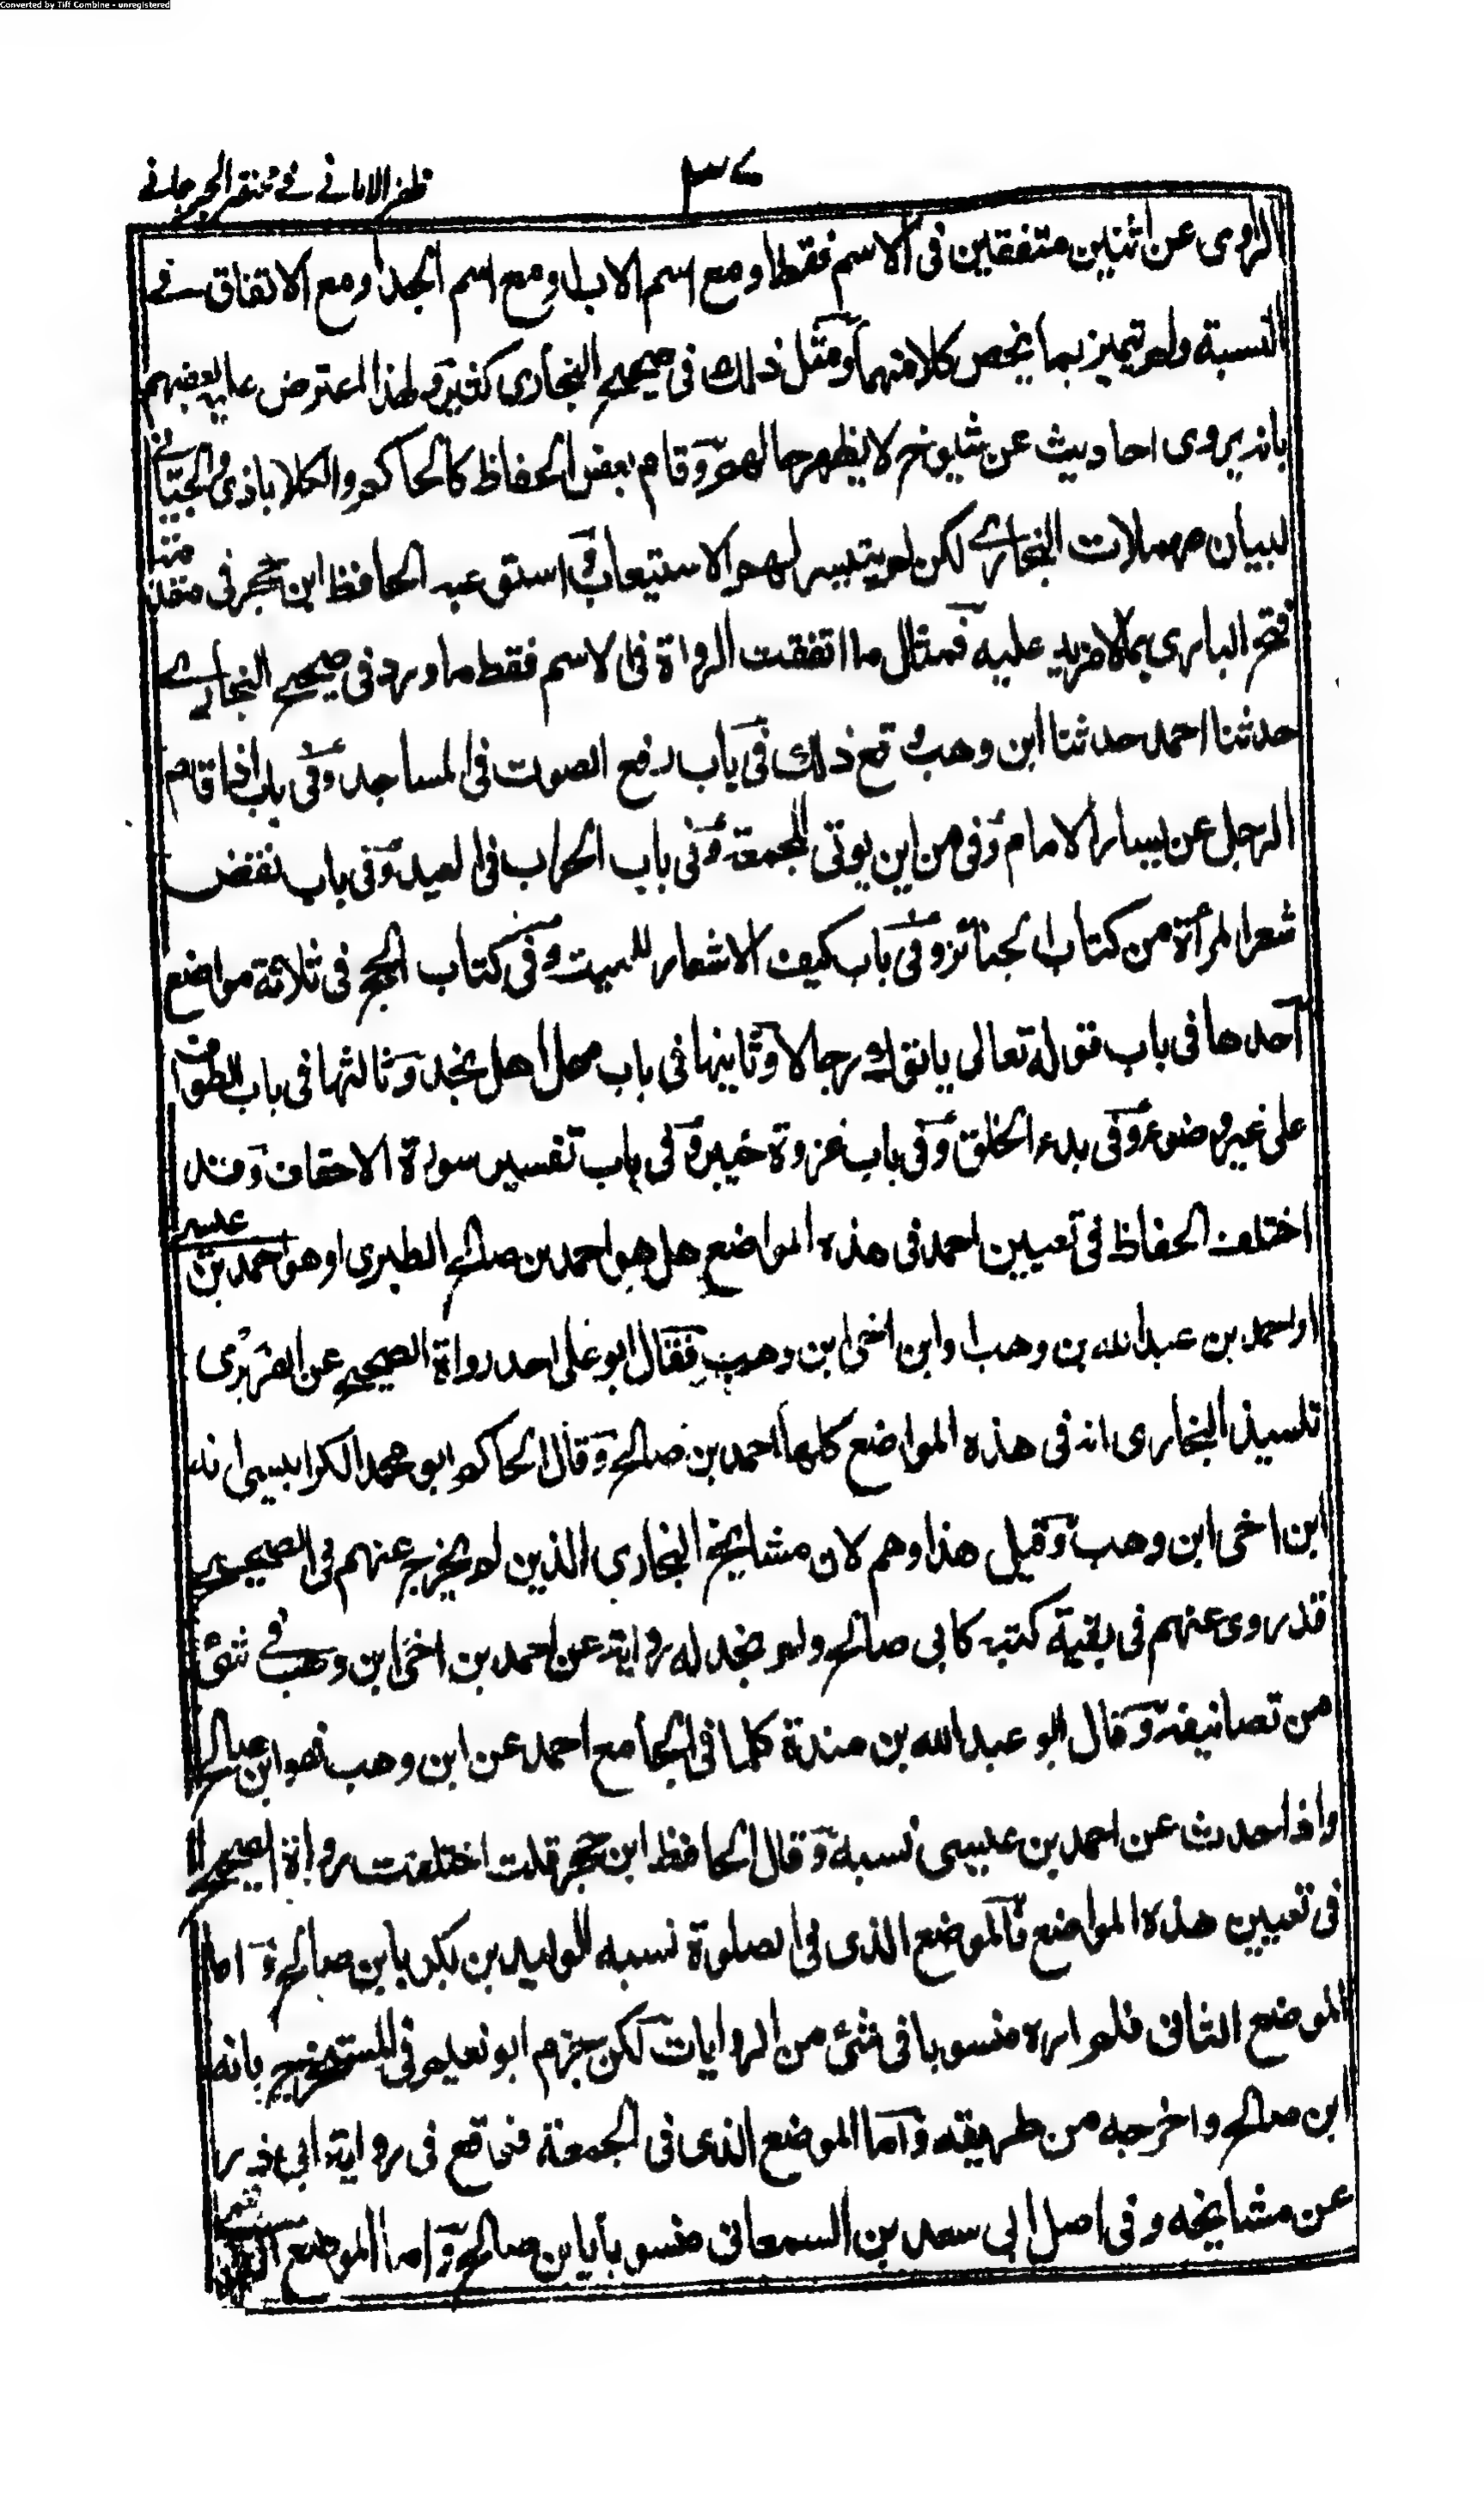 Converted by Tiff Combine - unregistered
ظفر الامانی فی مختصر الجرجانی
٣٧
الراوی عن اثنین متفقین فی الاسم فقط او مع اسم الاب او مع اسم الجد او مع الاتفاق فی
النسبة ولم تمیز بما یخص کلا منهما ومثل ذلک فی صحیح البخاری کثیر ولهذا اعترض علیه بعضهم
بانه یروی احادیث عن شیوخ لا یظهر حالهم وقام بعض الحفاظ کالحاکم والکلاباذی والجیانی
لبیان مهملات البخاری لکن لم یتیسر لهم الاستیعاب استوعبه الحافظ ابن حجر فی مقدمة
فتح الباری بما لا مزید علیه فمثال ما اتفقت الرواة فی الاسم فقط ما ورد فی صحیح البخاری
حدثنا احمد حدثنا ابن وهب وقع ذلک فی باب رفع الصوت فی المساجد وفی باب اذا قام
الرجل عن یسار الامام وفی من این یوتی الجمعة وفی باب الحراب فی العید وفی باب نقض
شعر المرأة من کتاب الجنائز وفی باب کیف الاشعار للمیت وفی کتاب الحج فی ثلاثة مواضع
احدها فی باب قوله تعالی یاتوک رجالا وثانیها فی باب مهل اهل نجد وثالثها فی باب الطواف
علی غیر وضوء وفی بدء الخلق وفی باب غزوة خیبر وفی باب تفسیر سورة الاحقاف وقد
اختلف الحفاظ فی تعیین احمد فی هذه المواضع هل هو احمد بن صالح الطبری او هو احمد بن عیسی
او احمد بن عبد الله بن وهب او ابن اخی ابن وهب فقال ابو علی احد رواة الصحیح عن الفربری
تلمیذ البخاری انه فی هذه المواضع کلها احمد بن صالح وقال الحاکم ابو محمد الکرابیسی انه
ابن اخی ابن وهب وقیل هذا وهم لان مشایخ البخاری الذین لم یخرج عنهم فی الصحیح
قد روی عنهم فی بقیة کتبه کابی صالح ولم نجد له روایة عن احمد بن اخی ابن وهب فی شئ
من تصانیفه وقال ابو عبد الله بن مندة کلما فی الجامع احمد عن ابن وهب فهو ابن صالح
واذا حدث عن احمد بن عیسی نسبه وقال الحافظ ابن حجر قلت اختلفت رواة الصحیح
فی تعیین هذه المواضع فالموضع الذی فی الصلوة نسبه الولید بن بکر بابن صالح واما
الموضع الثانی فلم اره منسوبا فی شئ من الروایات لکن جزم ابو نعیم فی المستخرج بانه
ابن صالح واخرجه من طریقه واما الموضع الذی فی الجمعة فوقع فی روایة ابی ذر
عن مشایخه وفی اصل ابی سعد بن السمعانی منسوبا بابن صالح واما الموضع